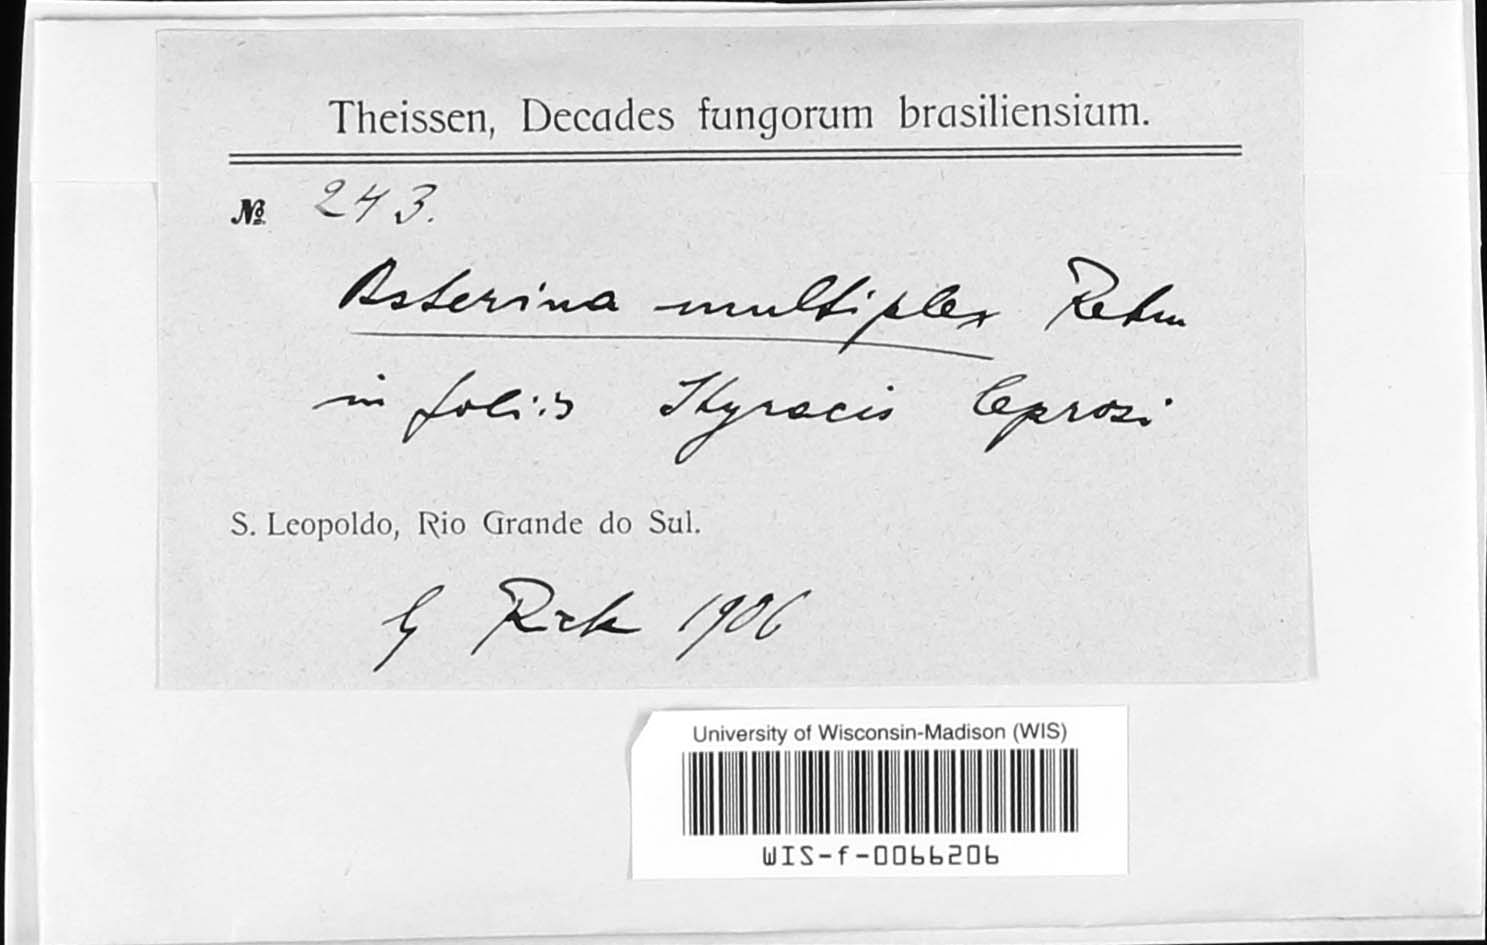 Theissen, Decades fungorum brasiliensium.
№ 243.
Asterina multiplex Rehm
in foliis Styracis leprosi
S. Leopoldo, Rio Grande do Sul.
lg Rick 1906
University of Wisconsin-Madison (WIS)
WIS-f-0066206